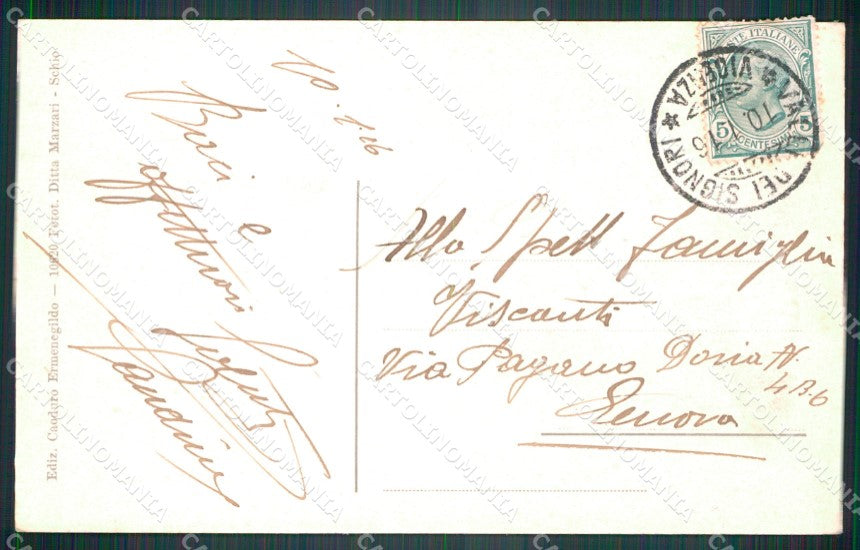 Ediz. Caodaro Ermenegildo — 10920 Fotot. Ditta Marzari - Schio
Baci e
affettuosi
saluti
POSTE ITALIANE
5 5
CENTESIMI
VALLI DEI SIGNORI
VICENZA
Alla Spett Famiglia
Visconti
Via Pagano Doria N.
4B6
Genova
CARTOLINOMANIA